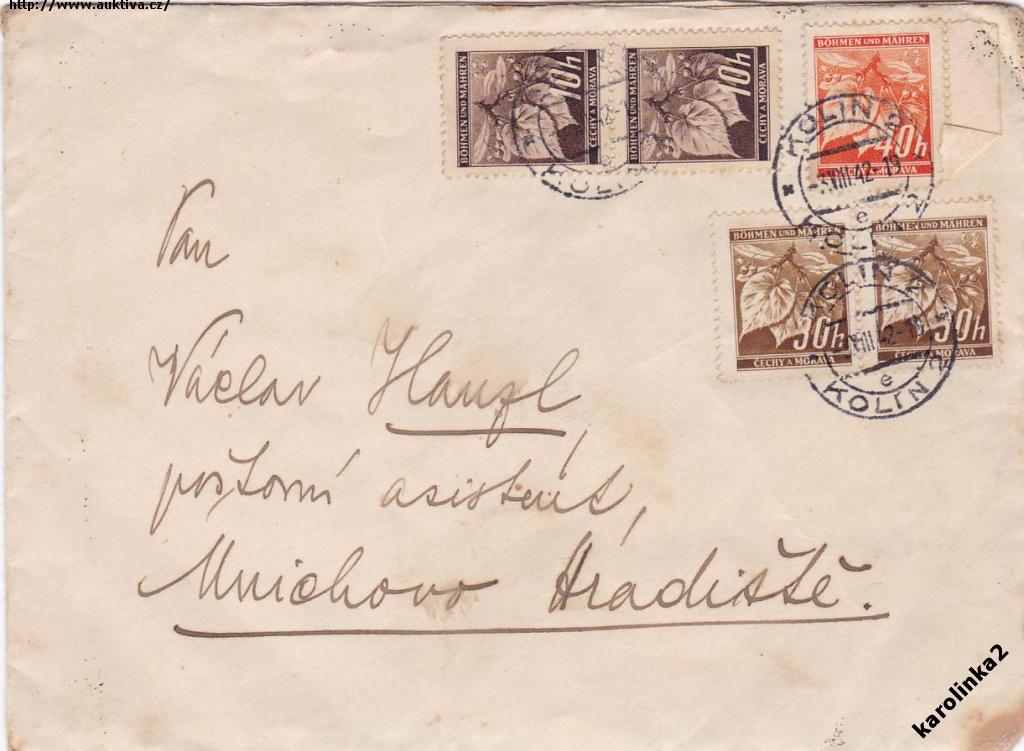 http://www.auktiva.cz/
BÖHMEN UND MÄHREN
10h
ČECHY A MORAVA
BÖHMEN UND MÄHREN
10h
ČECHY A MORAVA
KOLIN 2
BÖHMEN UND MÄHREN
40h
MORAVA
KOLIN 2
VIII.42-10
e
BÖHMEN UND MÄHREN
30h
ČECHY A MORAVA
BÖHMEN UND MÄHREN
30h
ČECHY A MORAVA
KOLIN 2
VIII.42-10
e
KOLIN 2
Pan
Václav Hanzl,
poštovní asistent,
Mnichovo Hradiště.
karolinka2